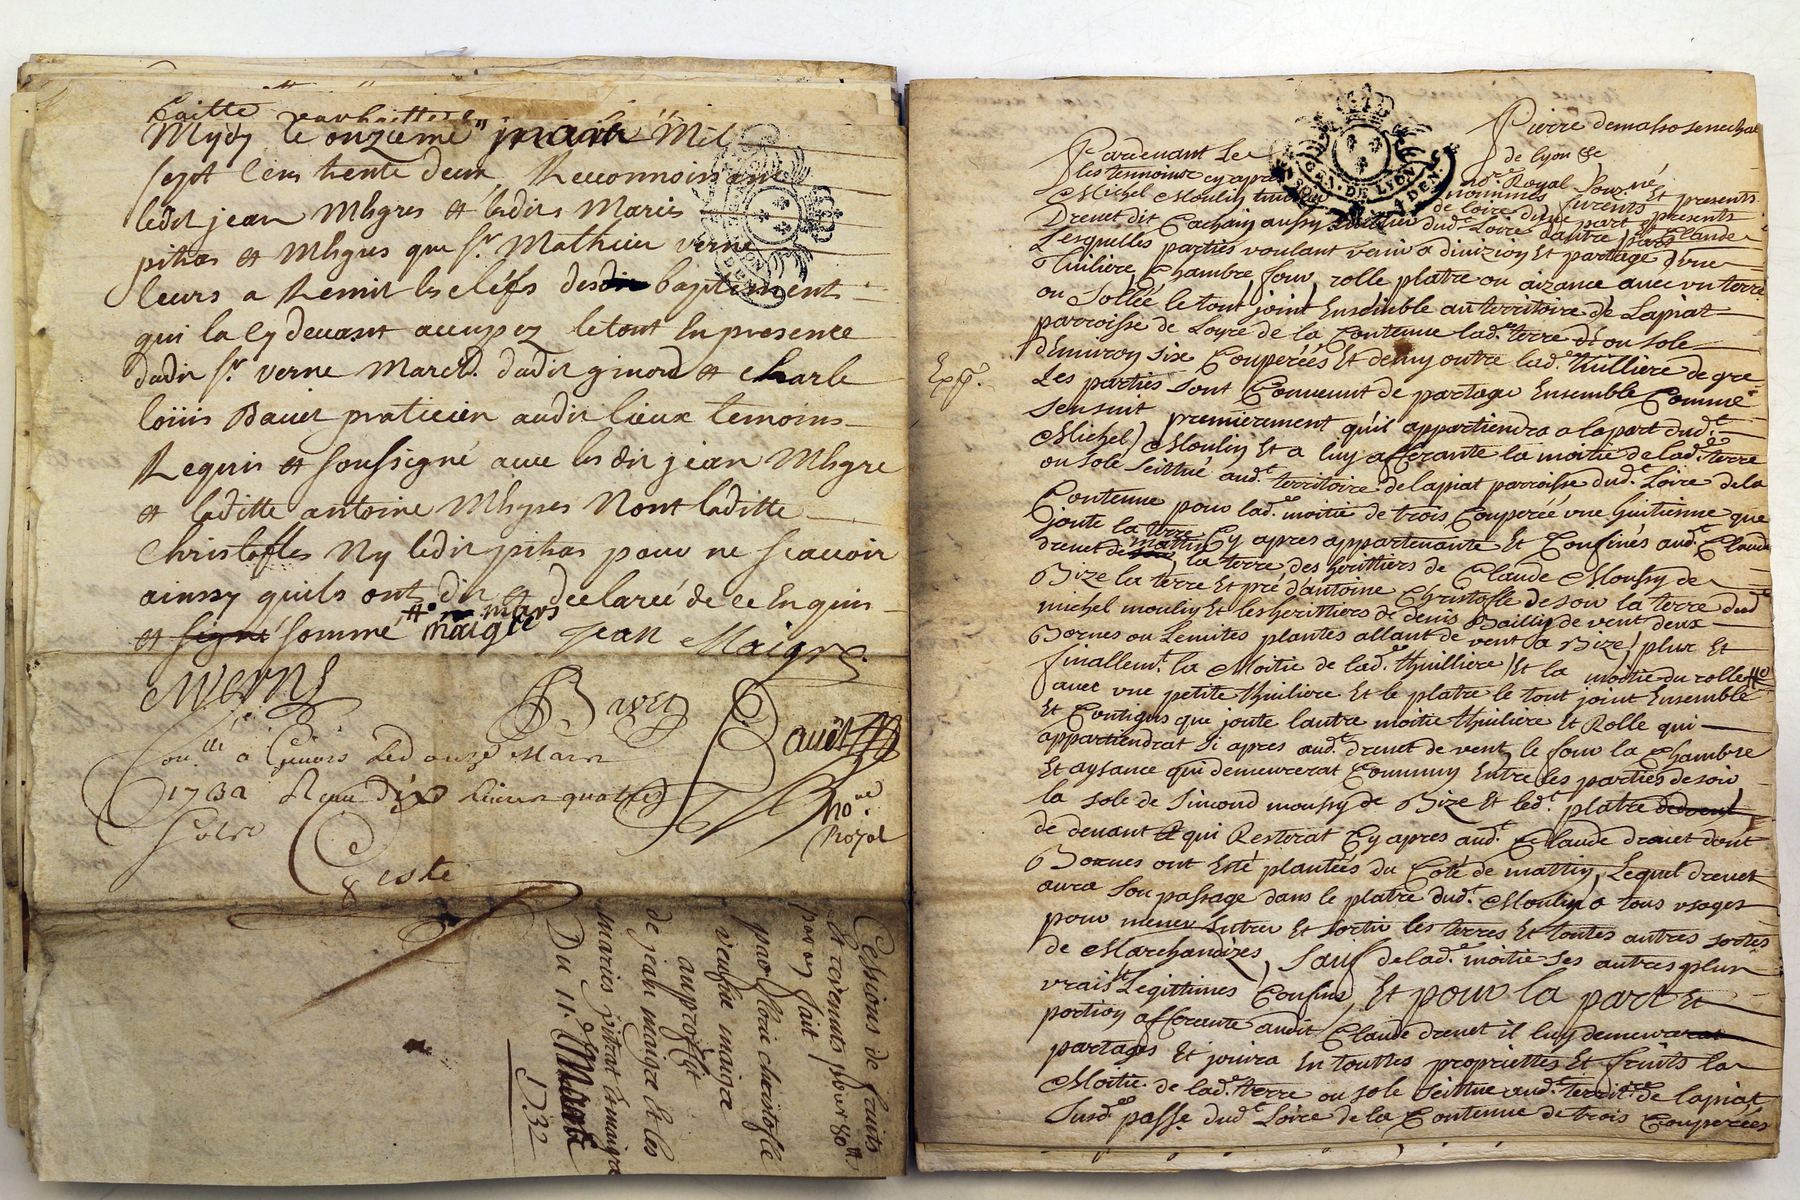 Mydy le onzieme mars Mil
sept Cens trente deux Reconnoissant
ledit jean Mhgres et ladits Maries
pitras et Mhgres que sr. Mathieu verne
leurs a Remit les cléfs desdit baptiments
qui la cy devant accupez le tout En presence
dudit sr. verne March. dudit givord et charle
loüis Bauet praticien audit lieux temoins
Requis et soussigné avec lesdit jean Mhgre
et laditte antoine Mhgres Nont laditte
Christofles Ny ledit pitras pour ne scavoir
ainssy quils ont dit et declareé de ce Enquis
et signé sommé maigre mars jean Maigre
Verne
Bauet
Bauet
Conlle a Givors Le douze Mars
1732 Receu dix
not.
Royal
Coste
Cessions de fruits
Et revenus pour 80
par florie christofle
veufve maigre
au proffit
de jean maigre Et les
maries pitrat Et maigre
Du 11. Mars
1732
Pierre demasso senechal
de lyon &c
GEN. DE LYON
Pardevant Le not.e Royal Souz.né
Et presents
les temoins cy apres nommés furents presents
Michel Moulin de Loire dune part Et Claude
Drevet dit Cachain aussy dud.t Loire d'autre part
Lesquelles parties voulant venir a divizion Et partage d'une
Thiliere, Chambre, four, rolle, platre ou aizance avec un terre
ou Sollée le tout joint Ensemble au territoire de Lapiat
parroisse de Loyre de la Contenue lad.e terre ou sole
d'Environ six Couperéés Et demy outre lad.e thilliere de gre
Les parties sont Convenut de partage Ensemble Comme
Sensuit premierement qu'il appartiendra a la part dud.t
Exp.
Michel Moulin Et a luy afferante la moitie de lad.e terre
ou sole seittué aud.t territoire de lapiat parroisse dud.t Loire de la
Contenue pour lad.e moitie de trois Couperéé une huitienne que
joute la terre Cy apres appartenante Et Confinés aud.t Claude
drevet de mattin, la terre des heritiers de Claude Moussy de
Bize la terre Et pré d'antoine Christofle de soir la terre dud.t
michel moulin Et les herittiers de denis Bailly de vent deux
Bornes ou Lemites plantes allant de vent a Bize, plux Et
finallem.t la Moitie de lad.e thuilliere Et la moitie du rolle
avec une petite thiliere Et le platre le tout joint Ensemble
Et Contigus que joute lautre moitie thuiliere Et Rolle qui
appartiendrat si apres aud.t drevet de vent, le four la Chambre
Et aysance qui demeurerat Commun Entre les parties de soir
la sole de Simond moussy de Bize Et led.t platre devent
de devant et qui Resterat Cy apres aud.t Claude drevet dont
Bornes ont Esté plantées du Coté de mattin, Lequel drevet
aura son passage dans le platre dud.t Moulin a tous usages
pour mener Entrer Et sortir les terres Et toutes autres sortes
de Marchandizes, Sauf de lad.e moitie ses autres plux
vrais Et Legittimes Confins, Et pour la part Et
portion afferante audit Claude drevet il luy demeurerat
partages Et joüira En touttes proprietés Et fruits la
Moitie de lad.e terre ou sole seittue aud.t territ.re de lapiat,
susd.e passe. dud.t Loire de la Contenue de trois Couperéés